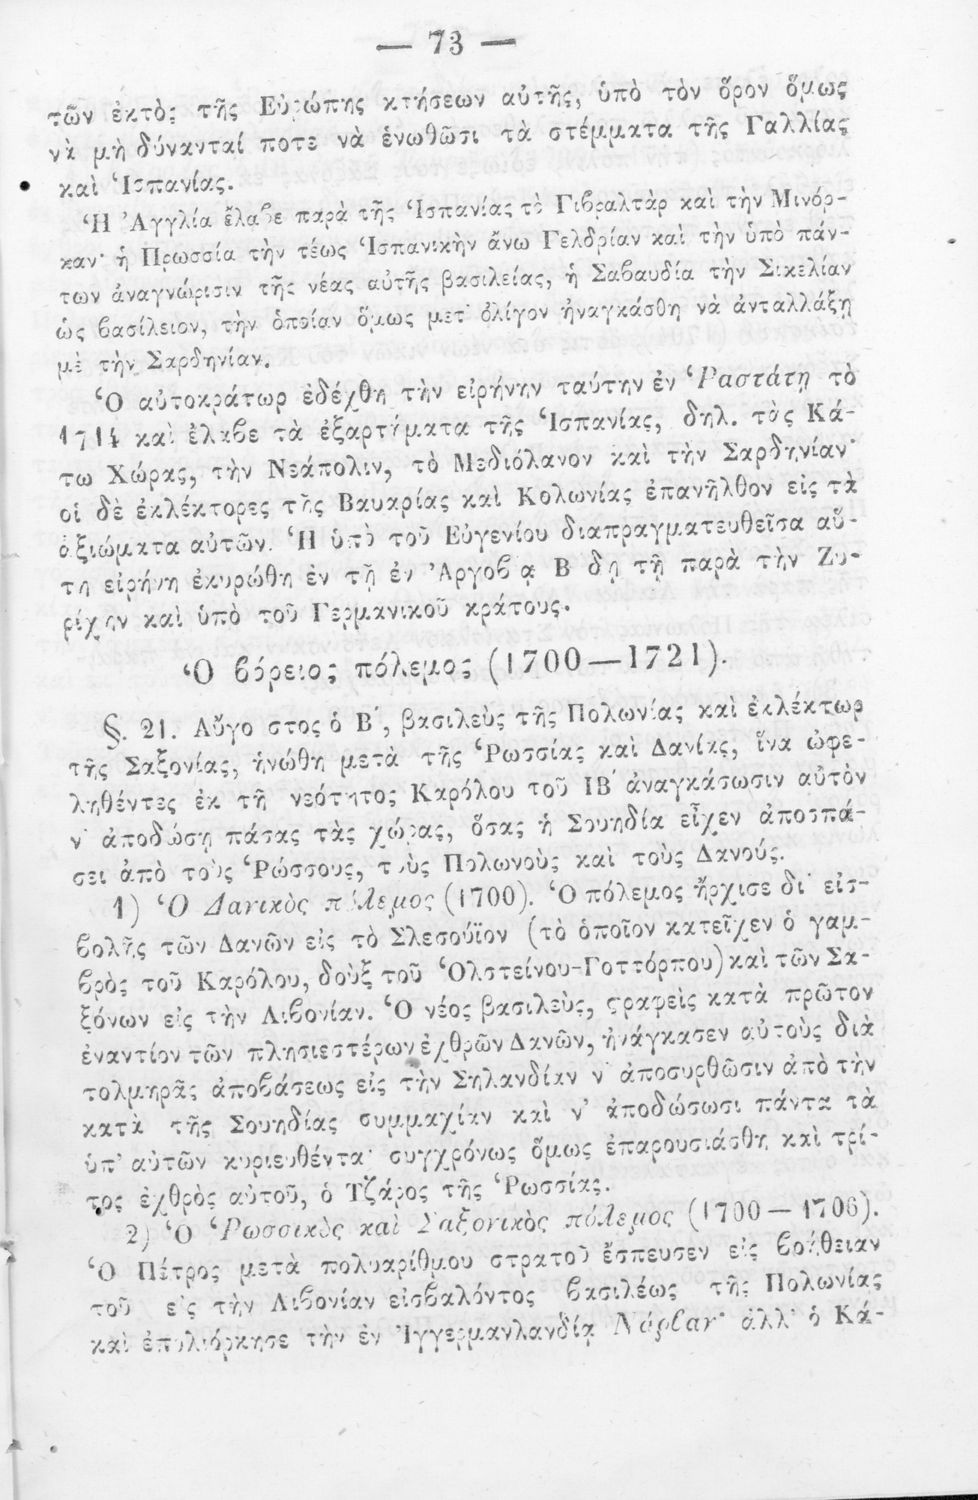 — 73 —
τῶν ἐκτὸς τῆς Εὐρώπης κτήσεων αὐτῆς, ὑπὸ τὸν ὅρον ὅμως
νὰ μὴ δύνανταί ποτε νὰ ἑνωθῶσι τὰ στέμματα τῆς Γαλλίας
καὶ Ἱσπανίας.
Ἡ Ἀγγλία ἔλαβε παρὰ τῆς Ἱσπανίας τὸ Γιβραλτὰρ καὶ τὴν Μινόρ-
καν· ἡ Πρωσσία τὴν τέως Ἱσπανικὴν ἄνω Γελδρίαν καὶ τὴν ὑπὸ πάν-
των ἀναγνώρισιν τῆς νέας αὐτῆς βασιλείας, ἡ Σαβαυδία τὴν Σικελίαν
ὡς βασίλειον, τὴν ὁποίαν ὅμως μετ' ὀλίγον ἠναγκάσθη νὰ ἀνταλλάξῃ
μὲ τὴν Σαρδηνίαν.
Ὁ αὐτοκράτωρ ἐδέχθη τὴν εἰρήνην ταύτην ἐν Ῥαστάτῃ τὸ
1714 καὶ ἔλαβε τὰ ἐξαρτήματα τῆς Ἱσπανίας, δηλ. τὰς Κά-
τω Χώρας, τὴν Νεάπολιν, τὸ Μεδιόλανον καὶ τὴν Σαρδηνίαν·
οἱ δὲ ἐκλέκτορες τῆς Βαυαρίας καὶ Κολωνίας ἐπανῆλθον εἰς τὰ
ἀξιώματα αὐτῶν. Ἡ ὑπὸ τοῦ Εὐγενίου διαπραγματευθεῖσα αὕ-
τη εἰρήνη ἐκυρώθη ἐν τῇ ἐν Ἀργοβ ᾳ Β δῃ τῇ παρὰ τὴν Ζυ-
ρίχην καὶ ὑπὸ τοῦ Γερμανικοῦ κράτους.
Ὁ βόρειος πόλεμος (1700—1721).
§. 21. Αὔγο στος ὁ Β΄, βασιλεὺς τῆς Πολωνίας καὶ ἐκλέκτωρ
τῆς Σαξονίας, ἡνώθη μετὰ τῆς Ῥωσσίας καὶ Δανίας, ἵνα ὠφε-
ληθέντες ἐκ τῆ νεότητος Καρόλου τοῦ ΙΒ΄ ἀναγκάσωσιν αὐτὸν
ν' ἀποδώσῃ πάσας τὰς χώρας, ὅσας ἡ Σουηδία εἶχεν ἀποσπά-
σει ἀπὸ τοὺς Ῥώσσους, τοὺς Πολωνοὺς καὶ τοὺς Δανούς.
1) Ὁ Δανικὸς πόλεμος (1700). Ὁ πόλεμος ἤρχισε δι' εἰσ-
βολῆς τῶν Δανῶν εἰς τὸ Σλεσουΐον (τὸ ὁποῖον κατεῖχεν ὁ γαμ-
βρὸς τοῦ Καρόλου, δοὺξ τοῦ Ὁλστείνου-Γοττόρπου) καὶ τῶν Σα-
ξόνων εἰς τὴν Λιβονίαν. Ὁ νέος βασιλεὺς, στραφεὶς κατὰ πρῶτον
ἐναντίον τῶν πλησιεστέρων ἐχθρῶν Δανῶν, ἠνάγκασεν αὐτοὺς διὰ
τολμηρᾶς ἀποβάσεως εἰς τὴν Σηλανδίαν ν' ἀποσυρθῶσιν ἀπὸ τὴν
κατὰ τῆς Σουηδίας συμμαχίαν καὶ ν' ἀποδώσωσι πάντα τὰ
ὑπ' αὐτῶν κυριευθέντα· συγχρόνως ὅμως ἐπαρουσιάσθη καὶ τρί-
τος ἐχθρὸς αὐτοῦ, ὁ Τζάρος τῆς Ῥωσσίας.
2) Ὁ Ῥωσσικὸς καὶ Σαξονικὸς πόλεμος (1700—1706).
Ὁ Πέτρος μετὰ πολυαρίθμου στρατοῦ ἔσπευσεν εἰς βοήθειαν
τοῦ εἰς τὴν Λιβονίαν εἰσβαλόντος βασιλέως τῆς Πολωνίας
καὶ ἐπολιόρκησε τὴν ἐν Ἰγγερμανλανδίᾳ Νάρβαν· ἀλλ' ὁ Κά-